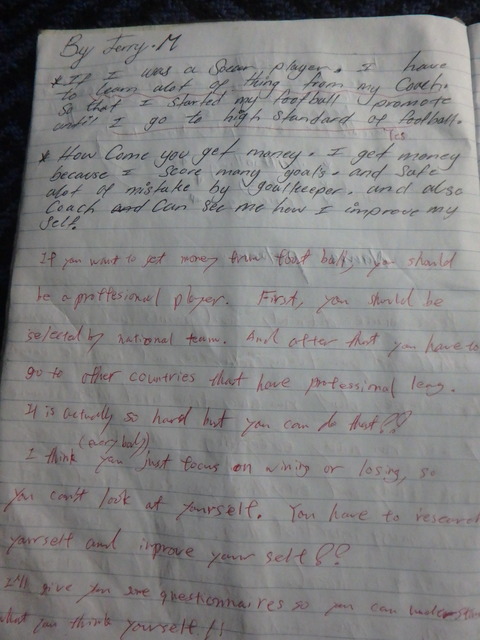 By Jerry. M
* If I was a Socar player. I have
to learn alot of thing from my Coach.
So that I started my football promote
until I go to high standard of football.
Yes
* How Come you get money. I get money
because I score many goals. and safe
alot of mistake by goalkeeper. and also
Coach and Can see me how I improve my
self.
If you want to get money from foot ball, you should
be a proffesional player. First, you should be
selected by national team. And after that you have to
go to other countries that have professional leag.
It is actually so hard but you can do that!!
(everybody)
I think you just focus on wining or losing, so
you can't look at yourself. You have to research
yourself and improve your self!!
I'll give you some questionnaires so you can understan
what you think yourself!!